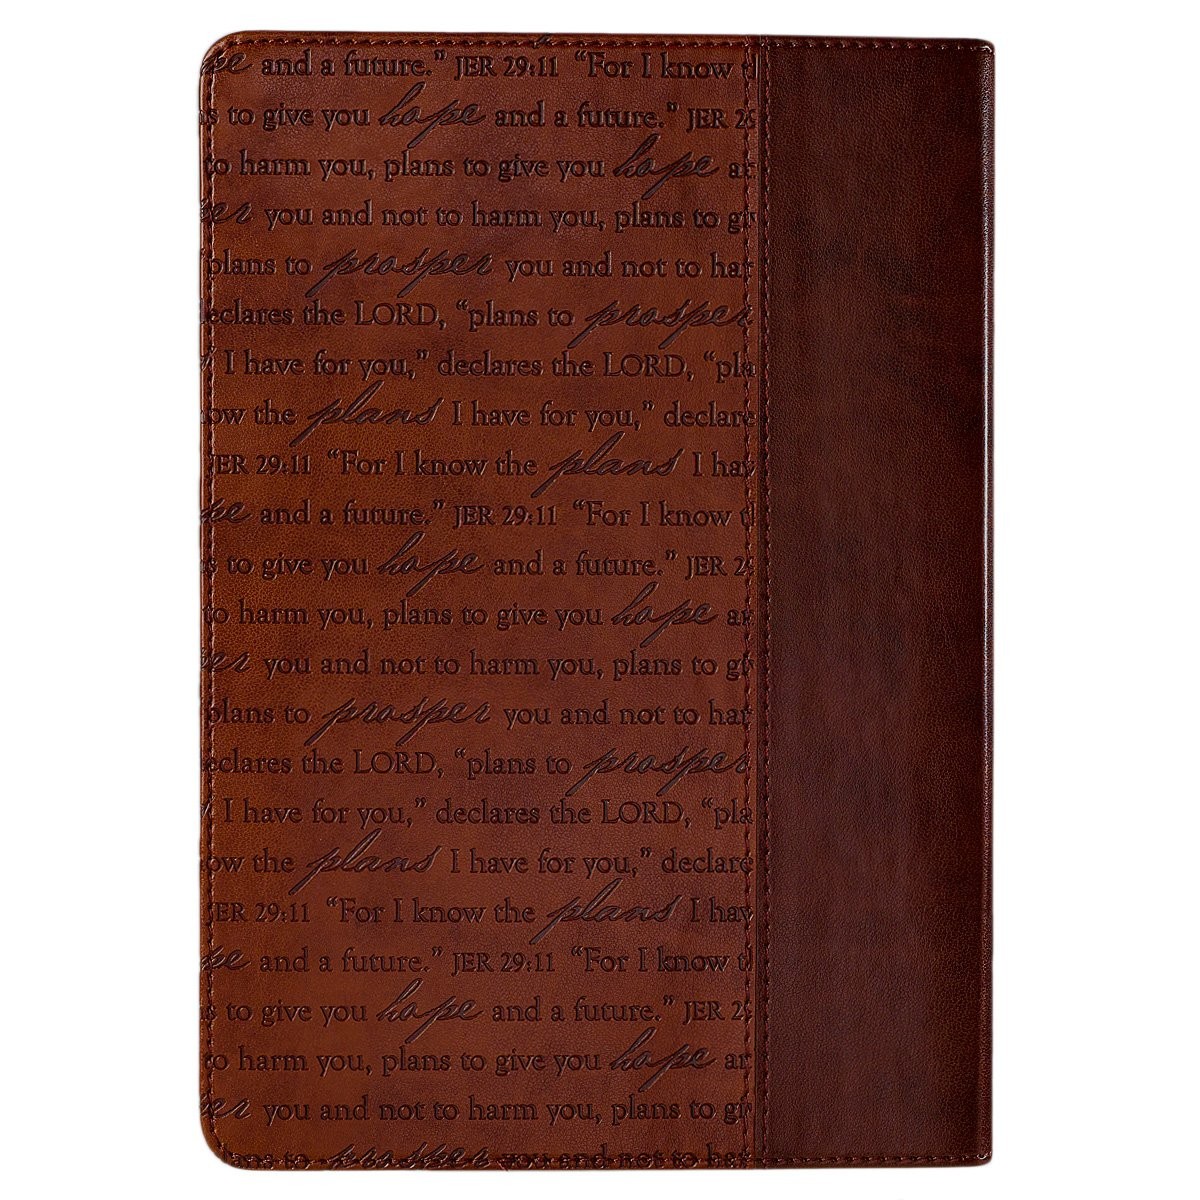 and a future." JER 29:11 "For I know
to give you hope and a future." JER
to harm you, plans to give you hope
you and not to harm you, plans to
plans to prosper you and not to
declares the LORD, "plans to prosper
I have for you," declares the LORD,
the plans I have for you," declare
JER 29:11 "For I know the plans I
and a future." JER 29:11 "For I know
to give you hope and a future." JER
to harm you, plans to give you hope
you and not to harm you, plans to
plans to prosper you and not to
declares the LORD, "plans to prosper
I have for you," declares the LORD,
the plans I have for you," declare
JER 29:11 "For I know the plans I
and a future." JER 29:11 "For I know
to give you hope and a future." JER
to harm you, plans to give you hope
you and not to harm you, plans to
plans to prosper you and not to